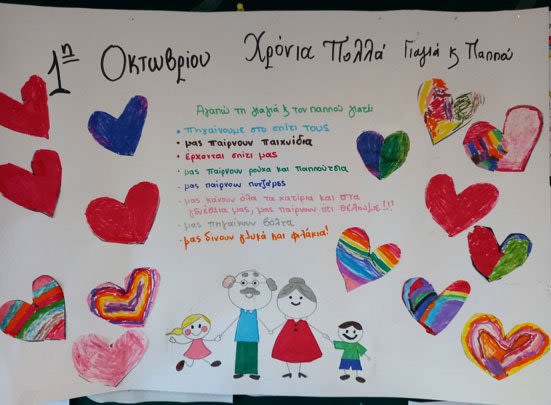 1η Οκτωβρίου Χρόνια Πολλά Γιαγιά κ Παππού
Αγαπώ τη γιαγιά κ τον παππού γιατί:
• πηγαίνουμε στο σπίτι τους
• μας παίρνουν παιχνίδια
• έρχονται σπίτι μας
• μας παίρνουν ρούχα και παπούτσια
• μας παίρνουν πυτζάμες
• μας κάνουν όλα τα χατίρια και στα
γενέθλια μας, μας παίρνουν ότι θέλουμε!!!
• μας πηγαίνουν βόλτα
• μας δίνουν γλυκά και φιλάκια!